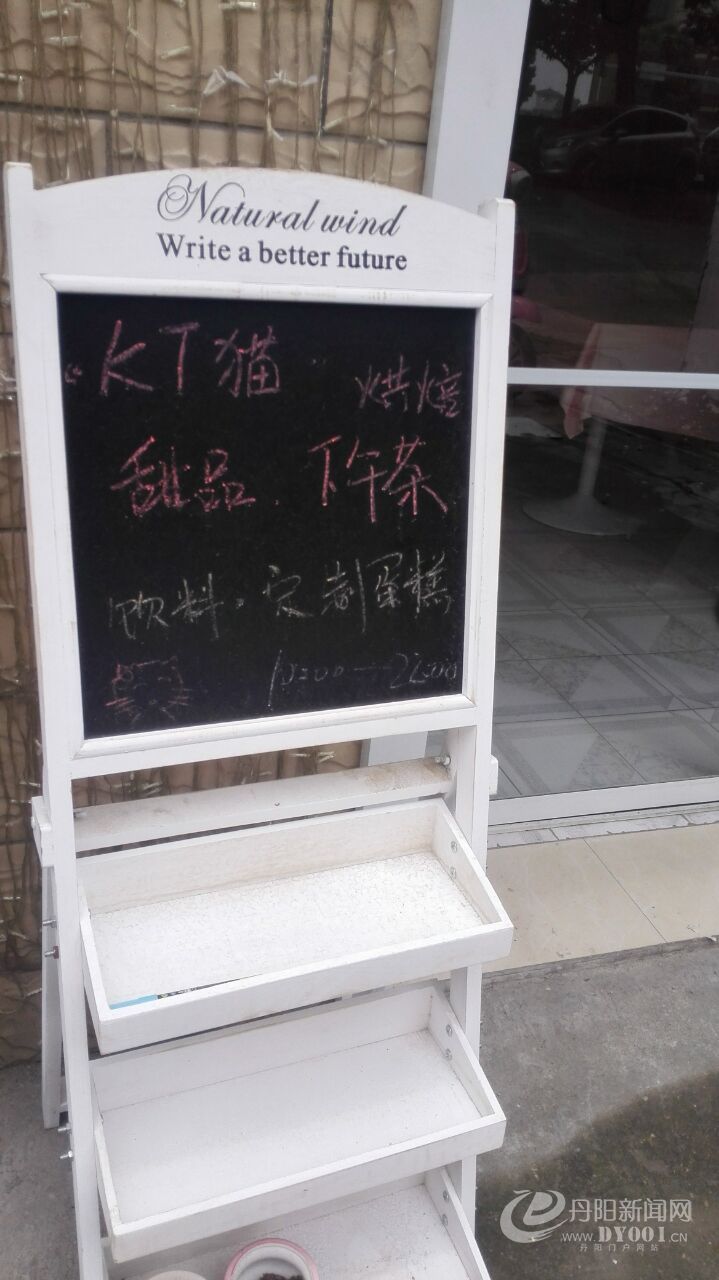 Natural wind
Write a better future
“KT猫” 烘焙
甜品.下午茶
饮料.定制蛋糕
丹阳新闻网
WWW.DY001.CN
丹阳门户网站